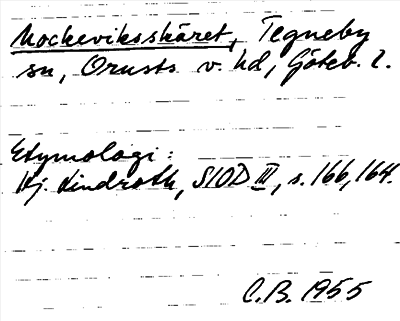 Mockeviksskäret, Tegneby
sn, Orusts v. hd, Göteb. l.
Etymologi:
Hj. Lindroth, SIOD III, s. 166, 164.
C.B. 1955